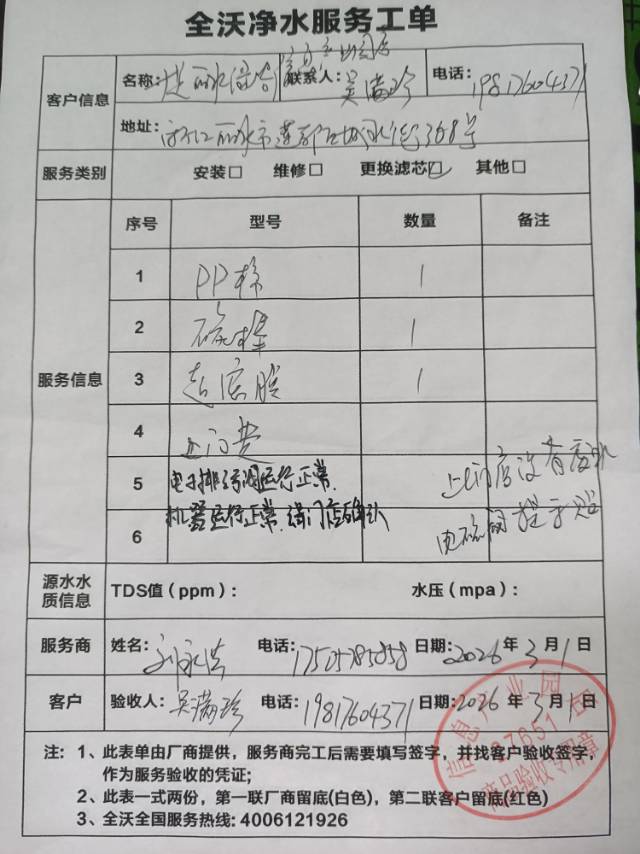 全沃净水服务工单
客户信息
名称: 丽水 联系人: 吴满珍 电话: 19817604371
地址: 浙江丽水市莲都区 368号
服务类别 安装□ 维修□ 更换滤芯☑ 其他□
序号 型号 数量 备注
服务信息
1 PP棉 1
2 1
3 1
4 上门费
5 电子排污阀运行正常.
上门后没有
6 机器运行正常.请门店确认
电磁阀提示
源水水质信息 TDS值（ppm）: 水压（mpa）:
服务商 姓名: 刘永 电话: 17505785858 日期: 2026年3月1日
客户 验收人: 吴满珍 电话: 19817604371 日期: 2026年3月1日
信息产业园
27651
商品验收专用章
注: 1、此表单由厂商提供，服务商完工后需要填写签字，并找客户验收签字，
作为服务验收的凭证;
2、此表一式两份，第一联厂商留底(白色)，第二联客户留底(红色)
3、全沃全国服务热线: 4006121926